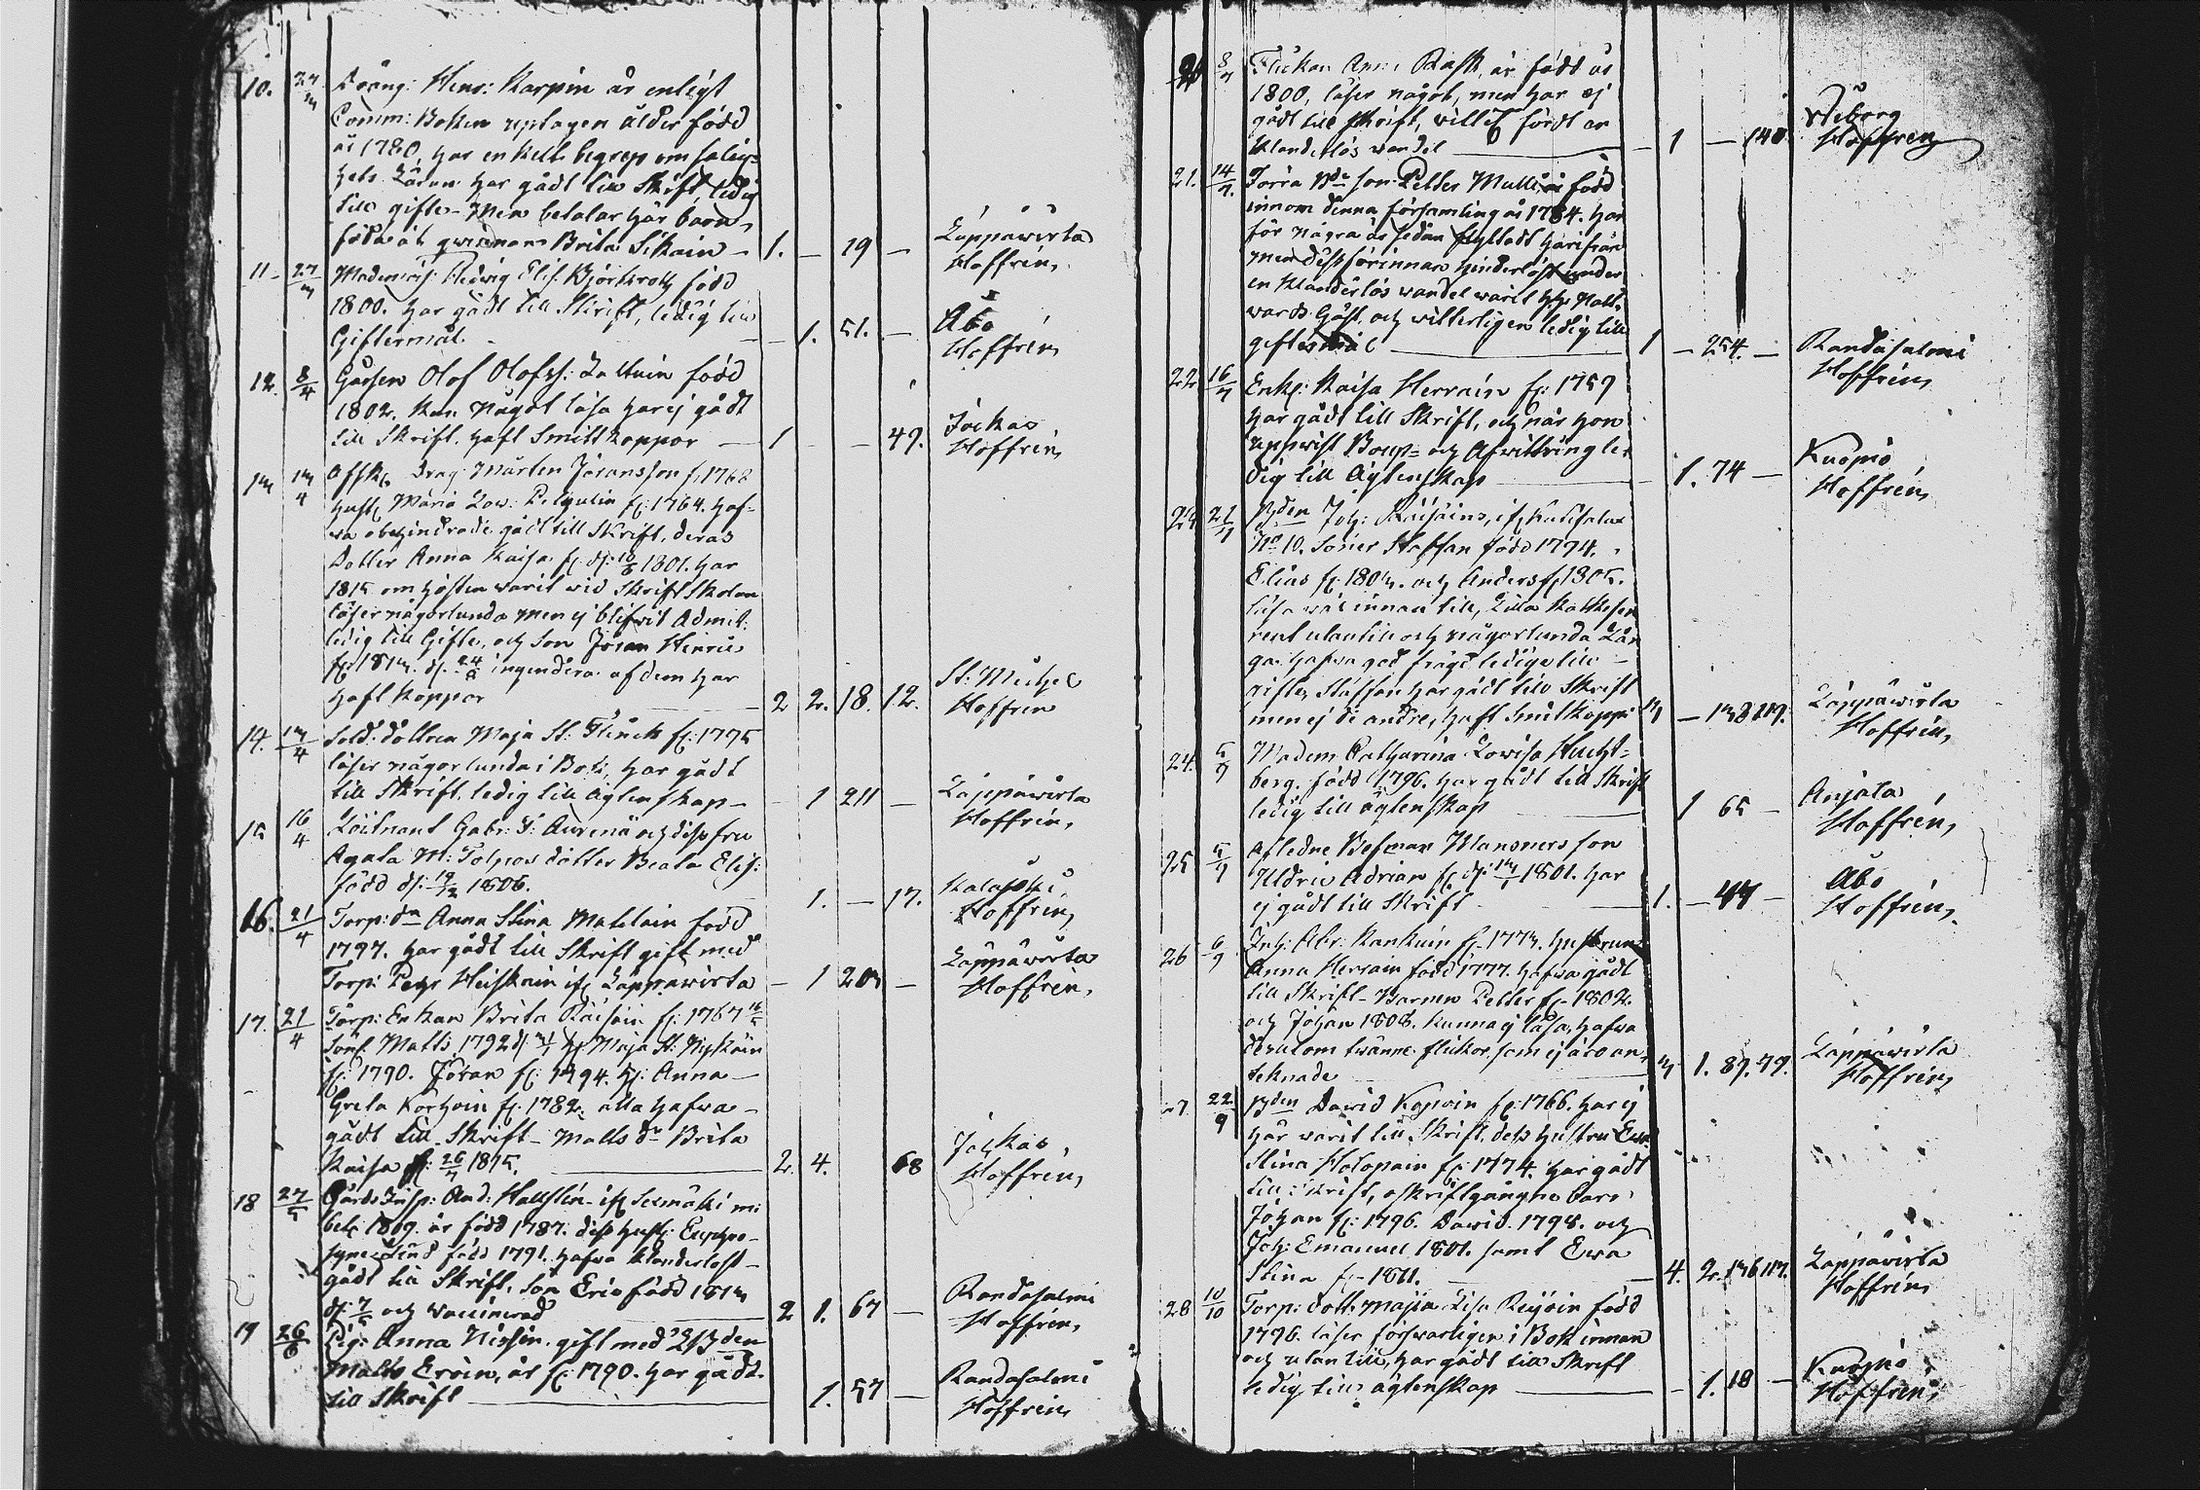 10. 27/3 Dräng: Henr: Karpin är enligt
Comm: Boken uptagen ålder född
år 1780, har enkelt begrep om salig=
hets Läran har gådt till Skrift ledig
till gifte - Men betalar här barn,
föda åt qwinnan Brita Sikain - 1. - 19 - Lappawirta Hoffrén,
11 - 27/3 Mademois: Hedwig Elis. Björk född
1800. har gådt till Skrift, ledig till
Giftermål. - 1. 51. - Åbo Hoffrén
12. 8/4 Gåssen Olof Olofss: född
1802. kan något läsa har ej gådt
till Skrift. haft Smittkoppor - 1 - - 49. Jockas Hoffrén
13 13/4 Afsk. Drag: Mårten Jöransson f. 1768
Hust. Maria Lov: f: 1764. haf=
wa obehindrade gådt till Skrift, deras
Dotter Anna Kaisa f. d: 1801. har
1815 om hösten warit wid Skrift Skolan
läser någorlunda men ej blifwit Admit:
ledig till Gifte, och Son Jöran Hinric
f. 1813. d. ingendera af dem har
haft koppor 2 2. 18. 12. St: Michel Hoffrén
14. 13/4 Sold: dottren Maja St: Flinck f: 1795
läser någorlunda i Bok, har gådt
till Skrift. ledig till ägtenskap - 1 211 - Lappawirta Hoffrén,
15 16/4 Löitnant Gabr: och dess fru
Agata M: dotter Beata Elis:
född d: 1806. 1. - 17. Hoffrén,
16. 21/4 Torp: d:r Anna Stina född
1797. har gådt till Skrift gift med
Torp: Petr Heiskain i Lappawirta - 1 203 - Lappawirta Hoffrén,
17. 21/4 Torp: Enkan Brita Räisäin f: 1767
Son Matts 1792 Maja St:
f: 1790. Jöran f: 1794. Anna
Greta Korhoin f: 1782. alla hafwa -
gådt till Skrift - Matts d:r Brita
Kaisa f: 1815. 2. 4. 68 Jockas Hoffrén,
18 27/5 Gårds Insp: And: i
1809. är född 1787. dess hust:
född 1791. hafwa klanderlöst -
gådt till Skrift, Son Eric född 1813
d: och waccinerad 2 1. 67 - Randasalmi Hoffrén,
19 26/6 Pig: Anna Nissin gift med
Matts är f: 1790. har gådt
till Skrift 1. 57 - Randasalmi Hoffrén
20 8/7 Flickan Anna Rask, är född år
1800, läser något, men har ej
gådt till Skrift, fördt en
klanderlös wandel - 1 - 140. Wiborg Hoffrén
21. 14/7. Torra son Petter född
innom denna församling år 1784. har
för några år sedan flyttadt härifrån
men dess förinnan hinderlöst under
en klanderlös wandel warit H.H. Natt=
wards Gäst, och witterligen ledig till
giftermål 1 - 254. - Randasalmi Hoffrén,
22 16/7 Enk: Kaisa Herrain f: 1759
har gådt till Skrift, och när hon
uppwist Boup= och Afwittring le=
dig till Ägtenskap 1. 74 - Kuopio Hoffrén,
23 21/7 Bden Joh: Räisäins, if
No 10. Söner Staffan född 1794.
Elias f: 1803. och Anders f. 1805.
läsa wäl innan till, Lilla Katkesen
rent utantill och någorlunda Lån
ga. hafwa god frägd ledige till -
gifte, Staffan har gådt till Skrift
men ej de andre, haft Smitkoppor 3 - Lappawirta Hoffrén,
24. 5/9 Madem Catharina Lowisa
berg. född 1796. har gådt till Skrift
ledig till ägtenskap 1 65 - Anjala Hoffrén,
25 5/9 afledne Besman son
Uldric Adrian f: d: 1801. har
ej gådt till Skrift 1. - 44 - Åbo Hoffrén,
26 6/9 Inh: Abr: f. 1773. hustrun
Anna Herrain född 1777. hafwa gådt
till Skrift - Barnen Petter f. 1802.
och Johan 1808. kunna ej läsa, hafwa
desutom twänne flickor som ej äro an=
teknade 3 1. 89. 79. Lappawirta Hoffrén,
27. 22/9 Bden Dawid f: 1766. har ej
här warit till Skrift, dess hustru Ewa
Stina Holopain f: 1774. har gådt
till Skrift, oskriftgångne barn
Johan f: 1796. Dawid. 1798. och
Joh: Emanuel 1801. samt Ewa
Stina f. 1811. 4. 2. Lappawirta Hoffrén
28 10/10 Torp: Dott. Maria Lisa född
1796. läser förswarligen i Bok innan
och utantill, har gådt till Skrift
ledig till ägtenskap - 1. 18 - Kuopio Hoffrén,